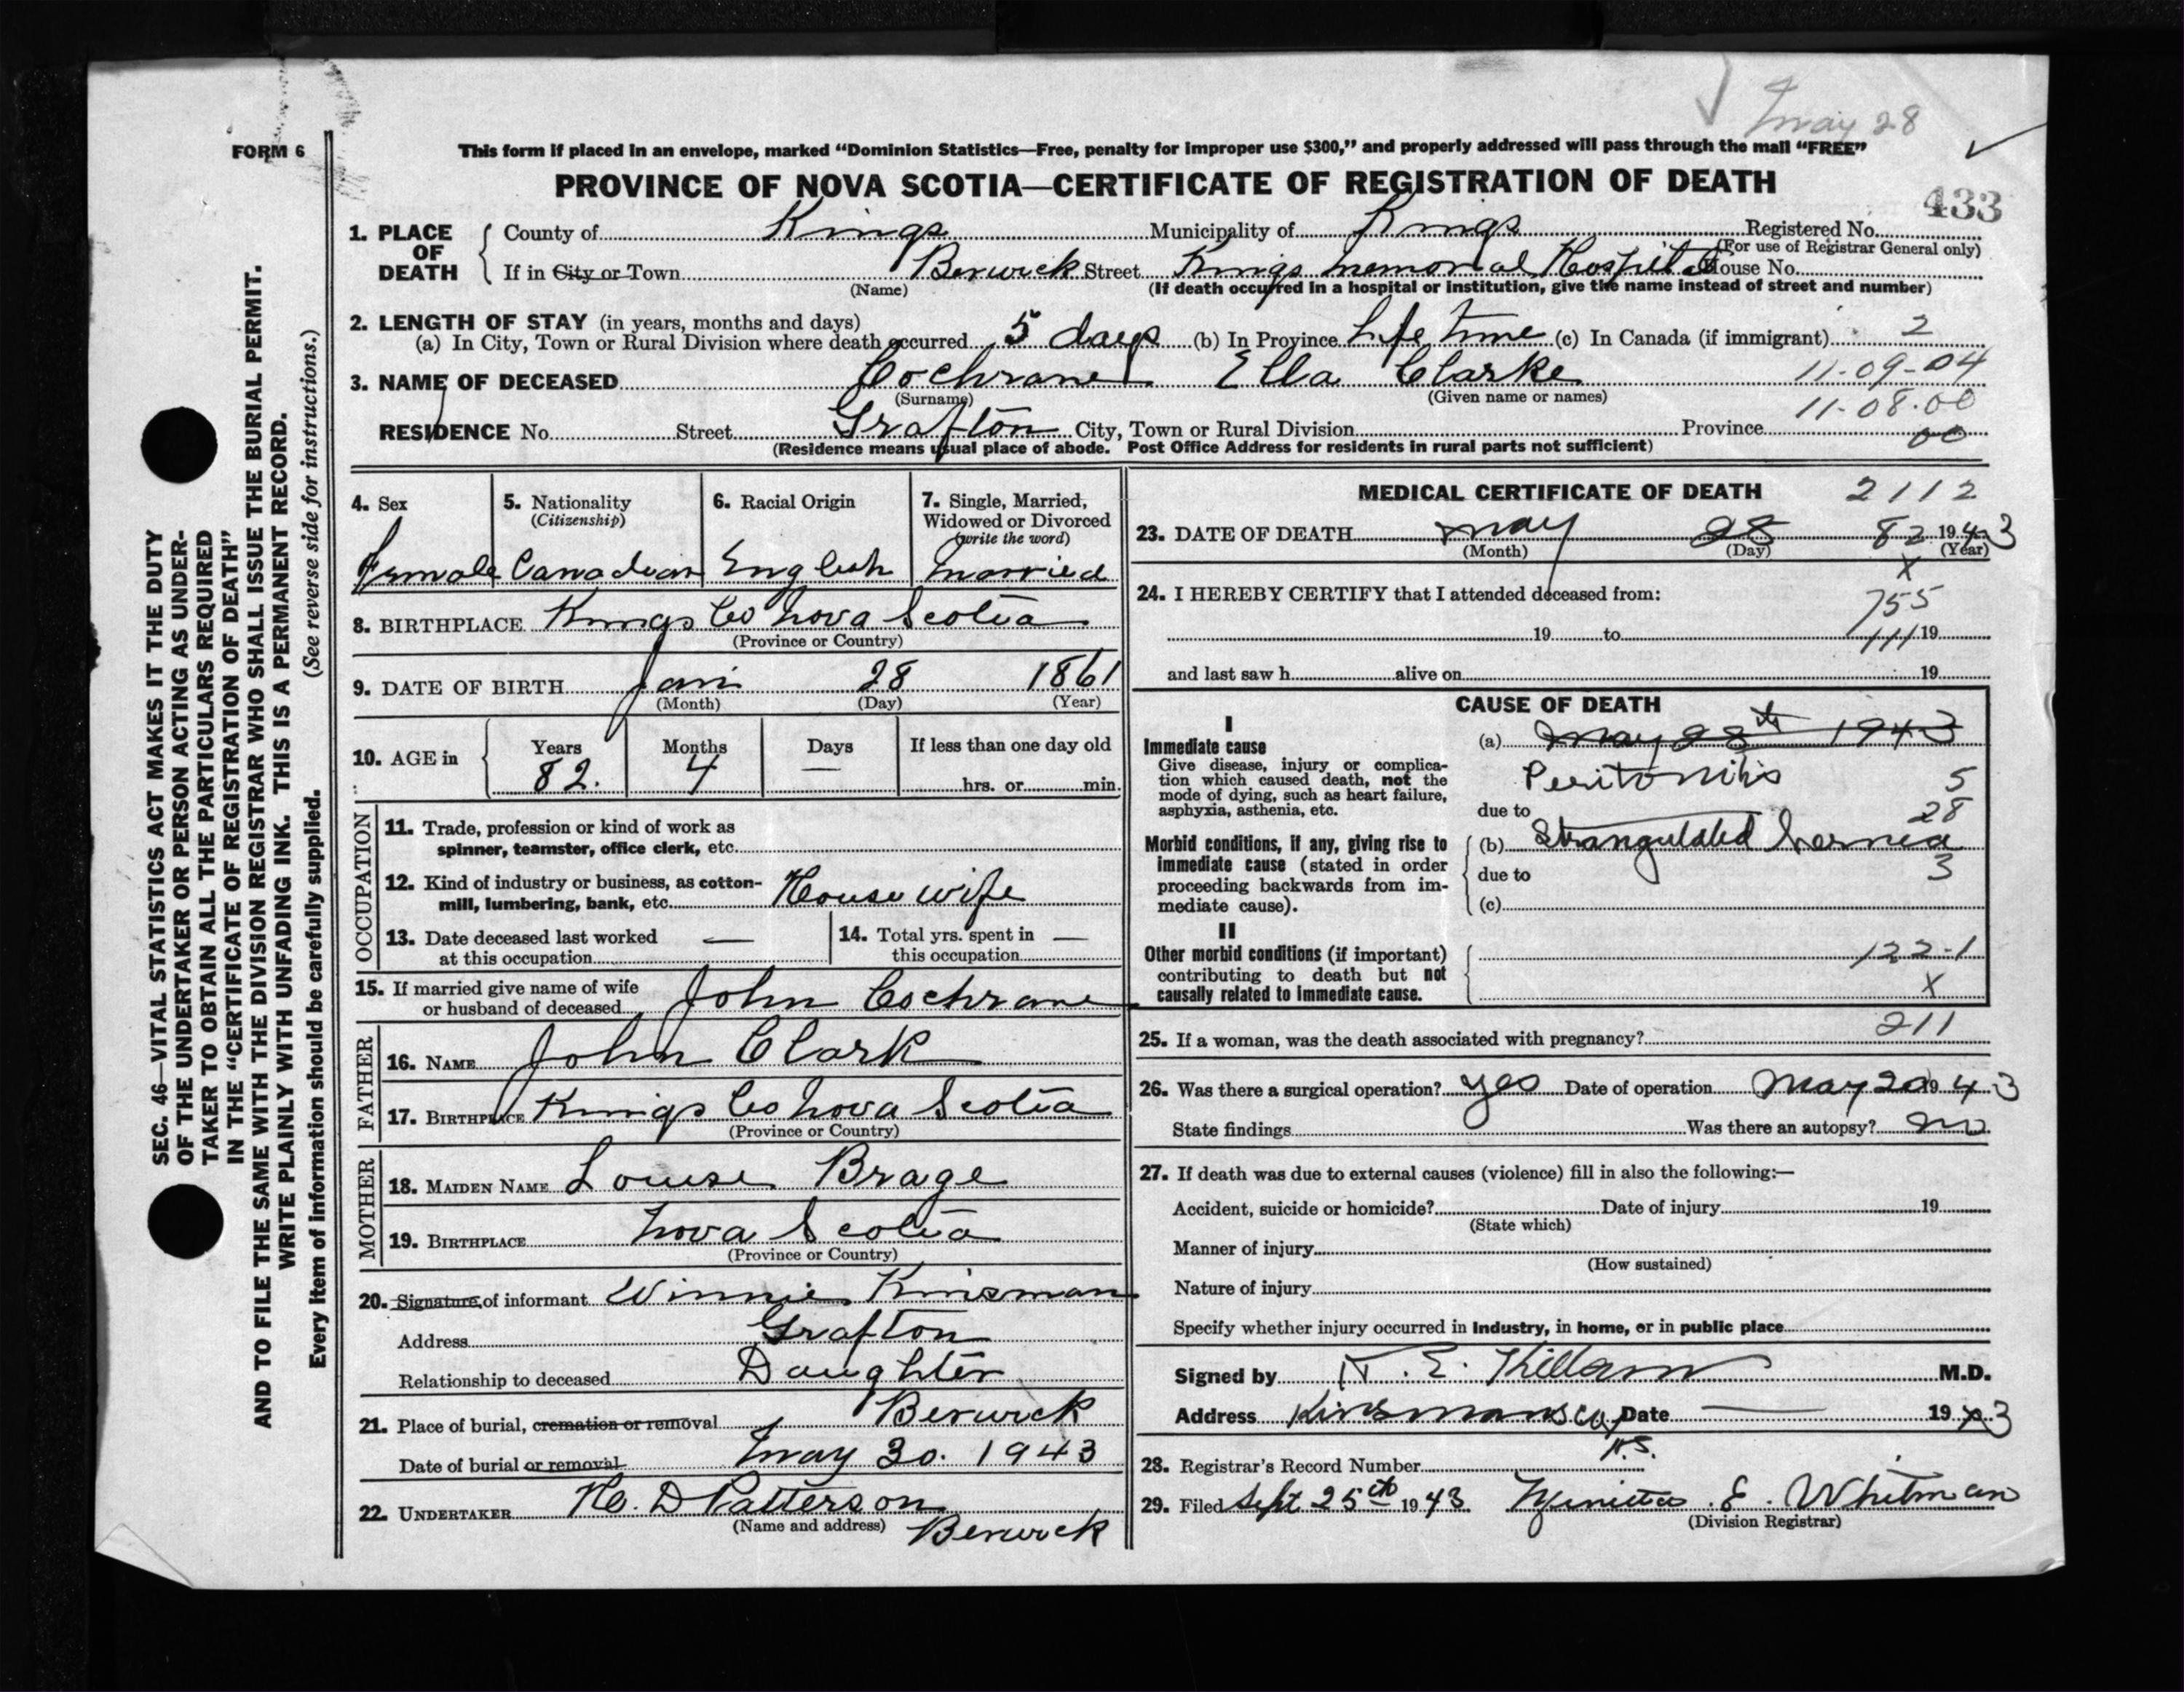 May 28
FORM 6
This form if placed in an envelope, marked “Dominion Statistics—Free, penalty for improper use $300,” and properly addressed will pass through the mail “FREE”
PROVINCE OF NOVA SCOTIA—CERTIFICATE OF REGISTRATION OF DEATH
433
1. PLACE OF DEATH
County of Kings Municipality of Kings Registered No.
(For use of Registrar General only)
If in City or Town Berwick Street Kings Memorial Hospital House No.
(Name) (If death occurred in a hospital or institution, give the name instead of street and number)
2. LENGTH OF STAY (in years, months and days)
(a) In City, Town or Rural Division where death occurred 5 days (b) In Province Life time (c) In Canada (if immigrant) 2
11-09-04
3. NAME OF DECEASED Cochrane Ella Clarke
(Surname) (Given name or names)
11-08-00
RESIDENCE No. Street Grafton City, Town or Rural Division Province 00
(Residence means usual place of abode. Post Office Address for residents in rural parts not sufficient)
4. Sex
Female
5. Nationality
(Citizenship)
Canadian
6. Racial Origin
English
7. Single, Married,
Widowed or Divorced
(write the word)
Married
8. BIRTHPLACE Kings Co Nova Scotia
(Province or Country)
9. DATE OF BIRTH Jan 28 1861
(Month) (Day) (Year)
10. AGE in
Years Months Days If less than one day old
82. 4 — hrs. or min.
OCCUPATION
11. Trade, profession or kind of work as
spinner, teamster, office clerk, etc.
12. Kind of industry or business, as cotton-
mill, lumbering, bank, etc. House wife
13. Date deceased last worked —
at this occupation
14. Total yrs. spent in —
this occupation
15. If married give name of wife
or husband of deceased John Cochrane
FATHER
16. NAME John Clark
17. BIRTHPLACE Kings Co Nova Scotia
(Province or Country)
MOTHER
18. MAIDEN NAME Louise Brage
19. BIRTHPLACE Nova Scotia
(Province or Country)
20. Signature of informant Winnie Kinsman
Address Grafton
Relationship to deceased Daughter
21. Place of burial, cremation or removal Berwick
Date of burial or removal May 30. 1943
22. UNDERTAKER H. D Patterson
(Name and address) Berwick
MEDICAL CERTIFICATE OF DEATH 2112
23. DATE OF DEATH May 28 82 1943
(Month) (Day) (Year)
X
24. I HEREBY CERTIFY that I attended deceased from:
755
19 to 111 19
and last saw h alive on 19
CAUSE OF DEATH
I
Immediate cause
Give disease, injury or complica-
tion which caused death, not the
mode of dying, such as heart failure,
asphyxia, asthenia, etc.
(a) May 28th 1943
Peritonitis 5
due to 28
Morbid conditions, if any, giving rise to
immediate cause (stated in order
proceeding backwards from im-
mediate cause).
(b) Strangulated hernia
due to 3
(c)
II
Other morbid conditions (if important)
contributing to death but not
causally related to immediate cause.
122-1
X
211
25. If a woman, was the death associated with pregnancy?
26. Was there a surgical operation? yes Date of operation May 20 1943
State findings Was there an autopsy? no
27. If death was due to external causes (violence) fill in also the following:—
Accident, suicide or homicide? Date of injury 19
(State which)
Manner of injury
(How sustained)
Nature of injury
Specify whether injury occurred in industry, in home, or in public place
Signed by K. E. Killam M.D.
Address Date 1943
N.S.
28. Registrar’s Record Number
29. Filed Sept 25th 1943 E. Whitman
(Division Registrar)
SEC. 46—VITAL STATISTICS ACT MAKES IT THE DUTY
OF THE UNDERTAKER OR PERSON ACTING AS UNDER-
TAKER TO OBTAIN ALL THE PARTICULARS REQUIRED
IN THE “CERTIFICATE OF REGISTRATION OF DEATH”
AND TO FILE THE SAME WITH THE DIVISION REGISTRAR WHO SHALL ISSUE THE BURIAL PERMIT.
WRITE PLAINLY WITH UNFADING INK. THIS IS A PERMANENT RECORD.
Every item of information should be carefully supplied. (See reverse side for instructions.)